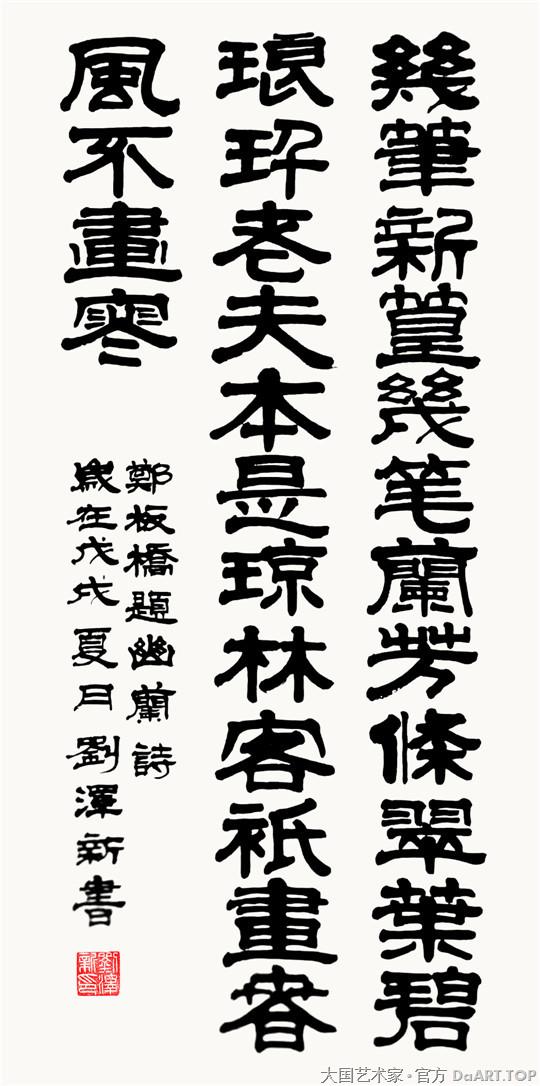 幾筆新篁幾笔蘭芳條翠葉碧
琅玕老夫本是琼林客祇畫春
風不畫寒
鄭板橋題幽蘭詩
歲在戊戌夏日劉澤新書
劉澤新印
大国艺术家·官方 DaART.TOP